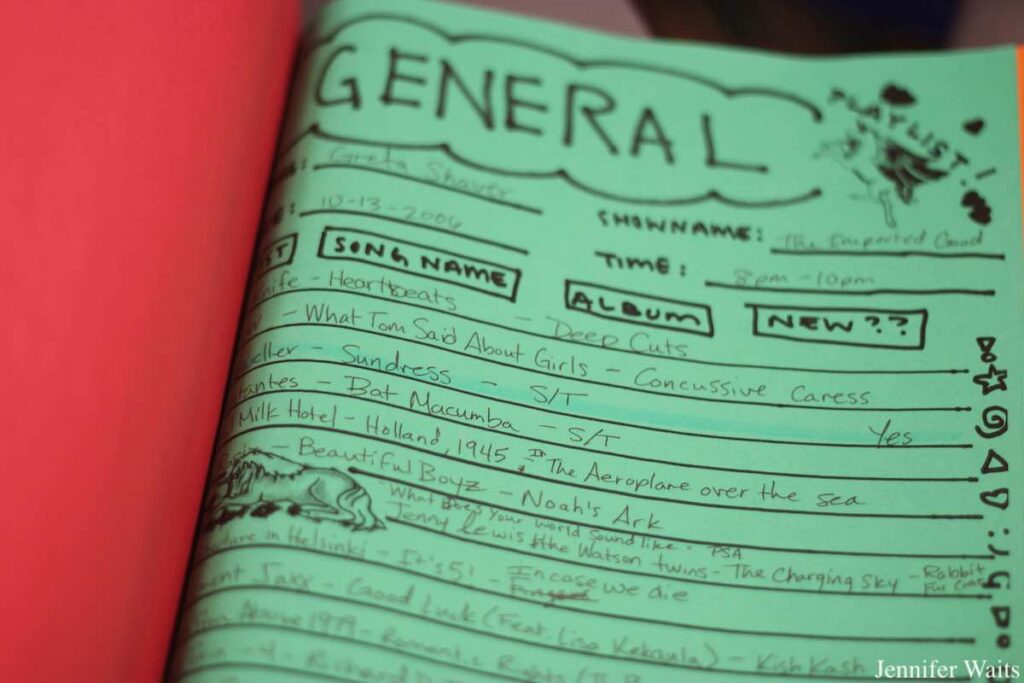 GENERAL
PLAYLIST!
Greta Shaver
SHOWNAME: The Imported Cloud
10-13-2006
TIME: 8pm - 10pm
SONG NAME ALBUM NEW??
Heartbeats - Deep Cuts
- What Tom Said About Girls - Concussive Caress
- Sundress - S/T Yes
- Bat Macumba - S/T
Milk Hotel - Holland, 1945 In The Aeroplane over the sea
- Beautiful Boyz - Noah's Ark
"What Does Your world sound like" - PSA
Jenny Lewis & the Watson twins - The Charging Sky - Rabbit Fur Coat
in Helsinki - It's 5! - In case we die
Jaxx - Good Luck (Feat. Lisa Kekaula) - Kish Kash
1979 - Romantic Rights
- 4 - Richard D
Jennifer Waits